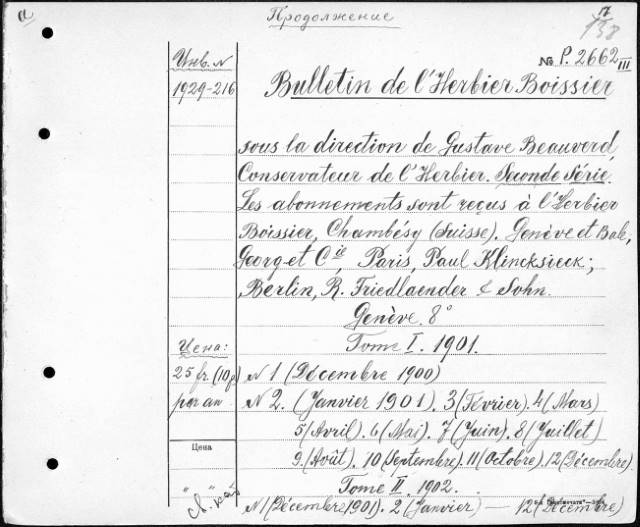 а
Продолжение
п
138
Инв. N
№ P. 2662 III
1929-216
Bulletin de l'Herbier Boissier
sous la direction de Gustave Beauverd,
Conservateur de l'Herbier. Seconde Série.
Les abonnements sont reçus à l'Herbier
Boissier, Chambésy (Suisse). Genève et Bale,
Georg et Cie, Paris, Paul Klincksieck;
Berlin, R. Friedlaender & Sohn.
Genève. 8°
Цена:
Tome I. 1901.
25 fr. (10 р)
N 1 (Décembre 1900)
par an
N 2. (Janvier 1901). 3 (Février). 4 (Mars)
5 (Avril). 6 (Mai). 7 (Juin). 8 (Juillet)
Цена
9. (Août). 10 (Septembre). 11 (Octobre). 12 (Décembre).
Tome II. 1902.
N 1 (Décembre 1901). 2 (Janvier) — 12 (Décembre)